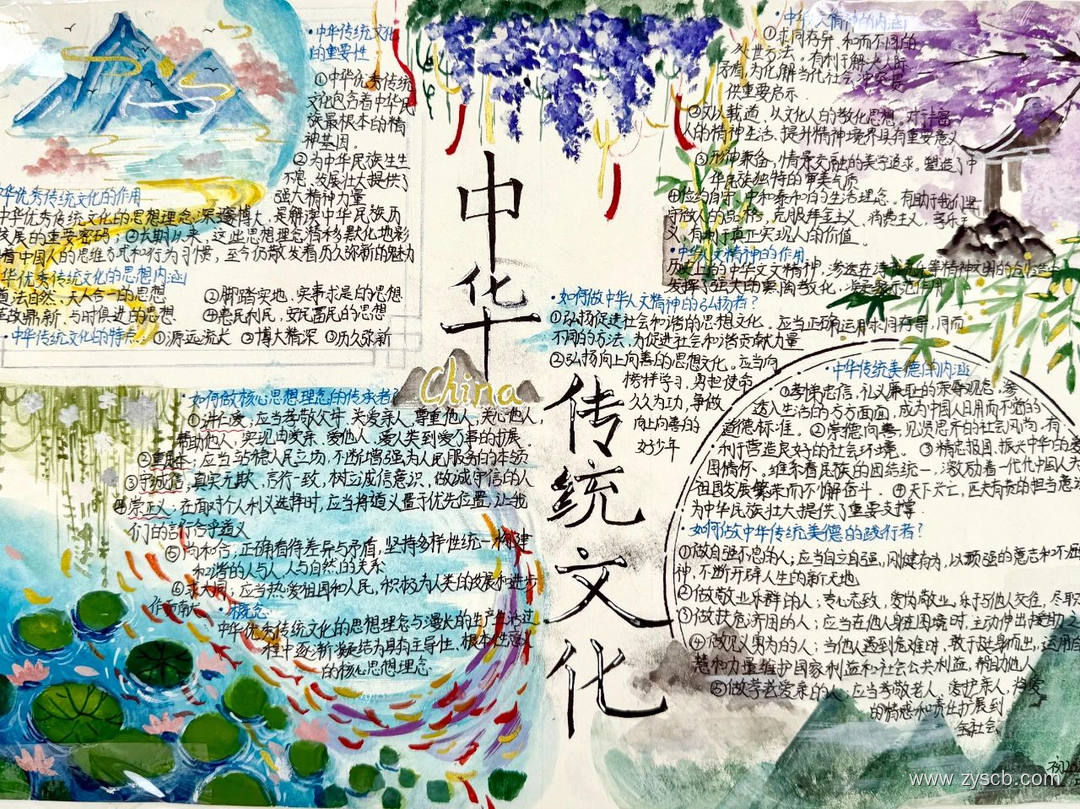 ·中华传统文化
的重要性
①中华优秀传统
文化包含着中华民
族最根本的精
神基因。
②为中华民族生生
不息、发展壮大提供了
强大精神力量
华优秀传统文化的作用
中华优秀传统文化的思想理念深邃博大,是解读中华民族历
发展的重要密码;②长期以来,这些思想理念潜移默化地影
着中国人的思维方式和行为习惯,至今仍散发着历久弥新的魅力
华优秀传统文化的思想内涵
道法自然、天人合一的思想 ②脚踏实地、实事求是的思想
革故鼎新、与时俱进的思想 ④惠民利民、安民富民的思想
·中华传统文化的特点:①源远流长 ②博大精深 ③历久弥新
中华
China
传统文化
如何做核心思想理念的传承者
①讲仁爱:应当孝敬父母、关爱亲人,尊重他人,关心他人,
帮助他人,实现由爱亲、爱他人、爱人类到爱万事的扩展.
②重民本:应当站稳人民立场,不断增强为人民服务的本领
③守诚信,真实无欺、言行一致,树立诚信意识,做诚实守信的人
④崇正义:在面对个人利义选择时,应当将道义置于优先位置,让我
们的言行合乎道义
⑤尚和合,正确看待差异与矛盾,坚持多样性统一构建
和谐的人与人、人与自然的关系
⑥求大同:应当热爱祖国和人民,积极为人类的发展和进步
作贡献
·概念
中华优秀传统文化的思想理念与漫长的生产生活过
程中逐渐凝结为具有主导性、根本性意义
的核心思想理念.
·中华人文精神的内涵
①求同存异、和而不同的
处世方法。有利于解决人际
矛盾,为化解当代社会冲突提
供重要启示.
②文以载道,以文化人的教化思想,对丰富
人的精神生活、提升精神境界具有重要意义
③形神兼备、情景交融的美学追求。塑造了中
华民族独特的审美气质
④俭约自守、中和泰和的生活理念。有助于我们坚
守做人的品格,克服拜金主义、消费主义、享乐主
义,有利于真正实现人的价值。
·中华人文精神的作用
发挥了强大的
·如何做中华人文精神的弘扬者?
①弘扬促进社会和谐的思想文化. 应当正确运用求同存异,同而
不同的方法,为促进社会和谐贡献力量
②弘扬向上向善的思想文化。应当向
榜样学习,勇担使命
久久为功,争做
向上向善的
好少年
中华传统美德的内涵
①孝悌忠信、礼义廉耻的荣辱观念,渗
透入生活的方方面面,成为中国人日用而不觉的
道德标准。②崇德向善,见贤思齐的社会风尚,有
利于营造良好的社会环境。③精忠报国,振兴中华的爱
国情怀。维系着民族的团结统一,激励着一代代中国人为
祖国发展繁荣而不懈奋斗.④天下兴亡,匹夫有责的担当意识
为中华民族壮大提供了重要支撑.
·如何做中华传统美德的践行者?
①做自强不息的人:应当自立自强,刚健有为,以顽强的意志和不屈
神,不断开辟人生的新天地
②做敬业乐群的人:专心志致,爱岗敬业,乐于与他人交往,尽职
③做扶危济困的人:应当在他人身处困境时,主动伸出援助之
④做见义勇为的人:当他人遇到危难时,敢于挺身而出,运用自
慧和力量维护国家利益和社会公共利益,帮助他人
⑤做孝老爱亲的人:应当孝敬老人、爱护亲人,将爱
的情感和责任扩展到
全社会
www.zyscb.com